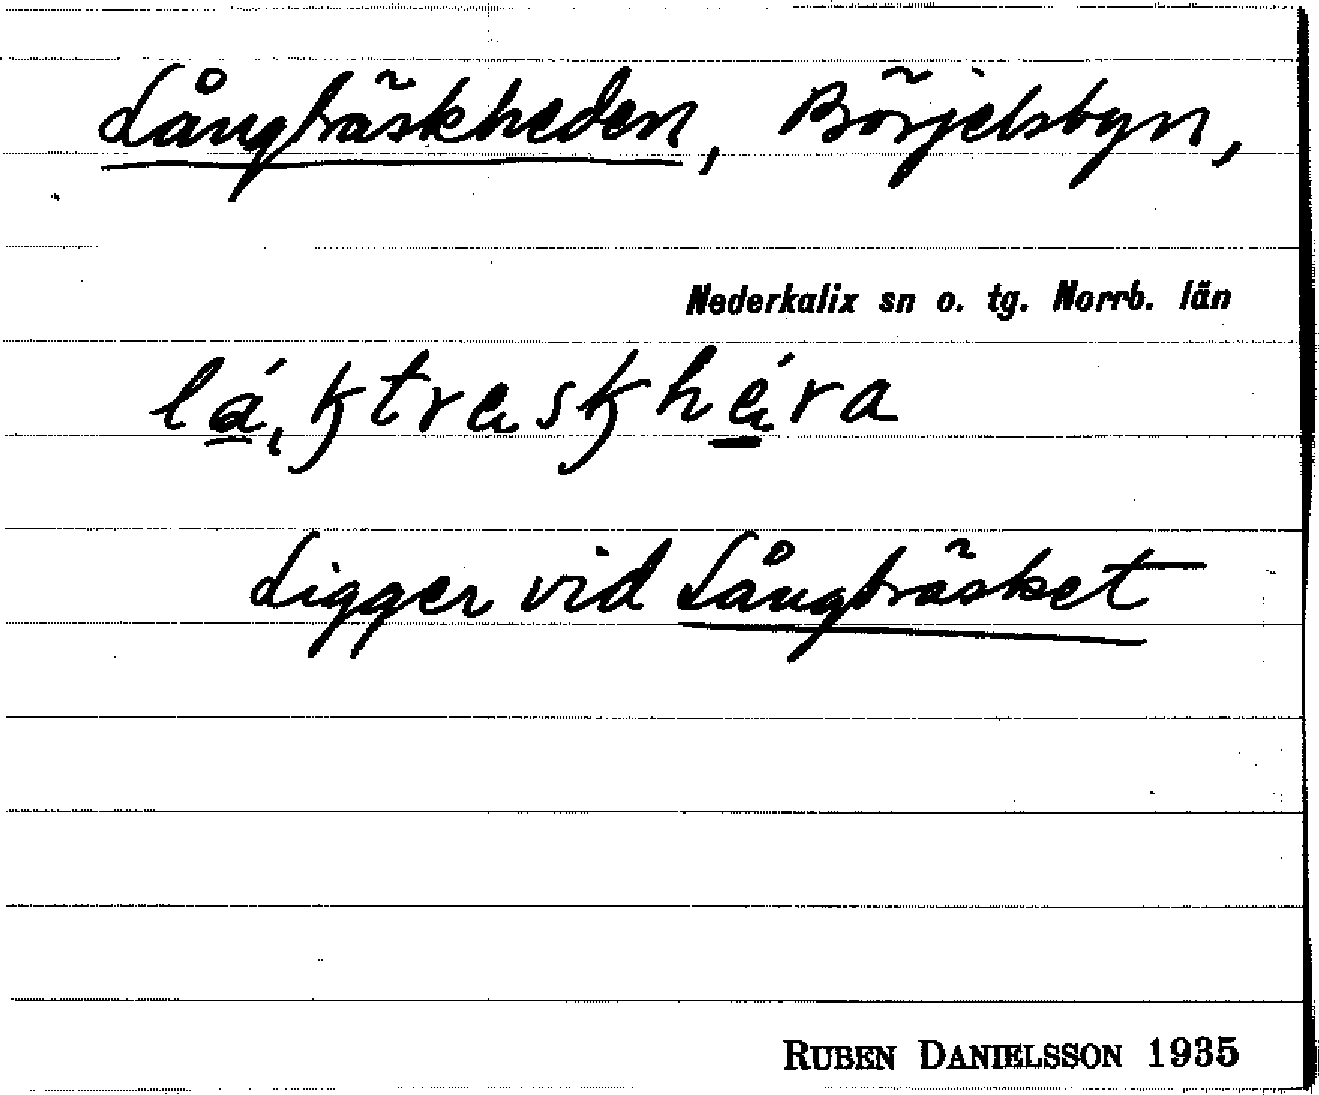 Långträskheden, Börjelsbyn,
Nederkalix sn o. tg. Norrb. län
lá̱ˌktreskhé̱ra
Ligger vid Långträsket
RUBEN DANIELSSON 1935